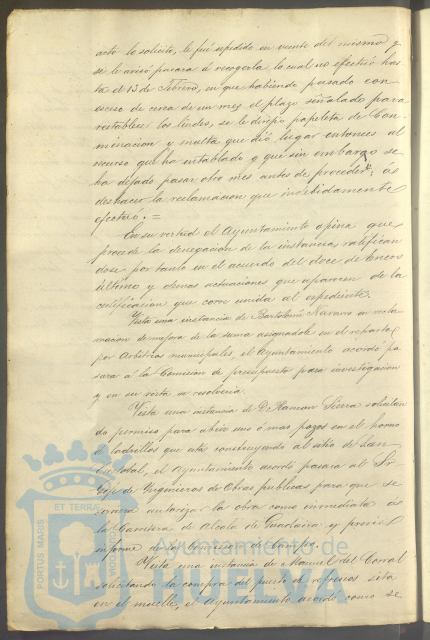 acto lo solicitó, le fué espedido en veinte del mismo y
se le avisó pasara á recogerla, lo cual no efectuó has
ta el 13 de Febrero, en que habiendo pasado con
esceso de cerca de un mes el plazo señalado para
restablecer los lindes, se le dirijio papeleta de con
minacion y multa que dió lugar entonces al
recurso que ha entablado y que sin embargo se
ha dejado pasar otro mes antes de proceder á
deshacer la reclamacion que indebidamente
efectuó.=
En su virtud el Ayuntamiento opina que
procede la denegacion de la instancia ratifican
dose por tanto en el acuerdo del doce de Enero
último y demas actuaciones que aparecen de la
certificacion que corre unida al espediente.
Vista una instancia de Bartolomé Navarro en recla
macion de mejora de la suma asignadole en el reparto
por Arbitrios municipales, el Ayuntamiento acordó pa
sara á la Comision de presupuesto para investigacion
y en su vista se resolveria.
Vista una instancia de D. Ramon Sierra solicitan
do permiso para abrir uno ó mas pozos en el horno
de ladrillos que está construyendo al sitio de San
Cristobal, el Ayuntamiento acordó pasara al Sr
Gefe de Ingenieros de Obras publicas para que se
sirviera autorizar la obra como inmediata á
la Carretera de Alcalá de Guadaira y previo
informe de la Comision de Campo.
Vista una instancia de Manuel del Corral
solicitando la compra del puesto de refrescos sito
en el muelle, el Ayuntamiento acordó como se
PORTUS MARIS ET TERRAE CUSTODIA
Ayuntamiento de
HUELVA